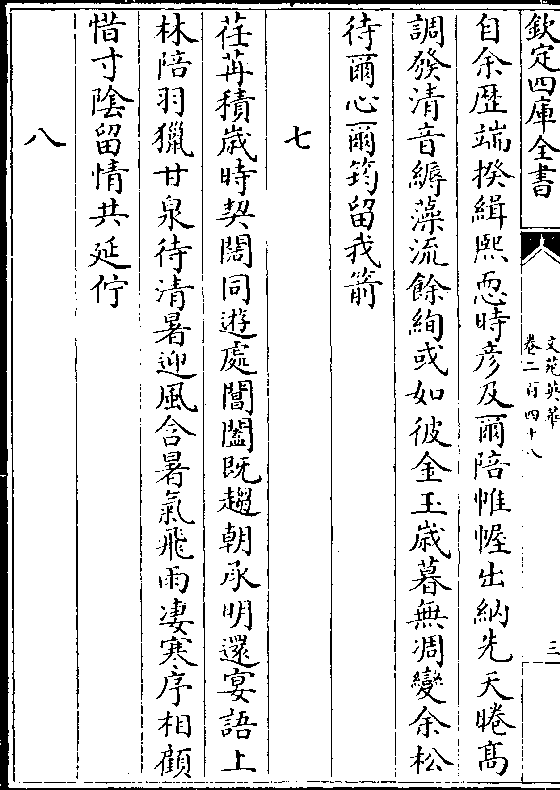 欽定四庫全書
文苑英華
卷二百四十八
三
自余歴端揆緝熙恧時彦及爾陪帷幄出納先天睠髙
調發清音縟藻流餘絢或如彼金玉歳暮無凋變余松
待爾心爾筠留我箭
七
荏苒積歳時契闊同遊處闔闔既趨朝承明還宴語上
林陪羽獵甘泉待清暑迎風含暑氣飛雨凄寒序相顧
惜寸陰留情共延佇
八